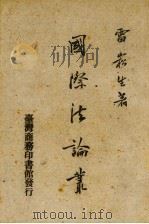 雷崧生著
國際法論叢
臺灣商務印書館發行